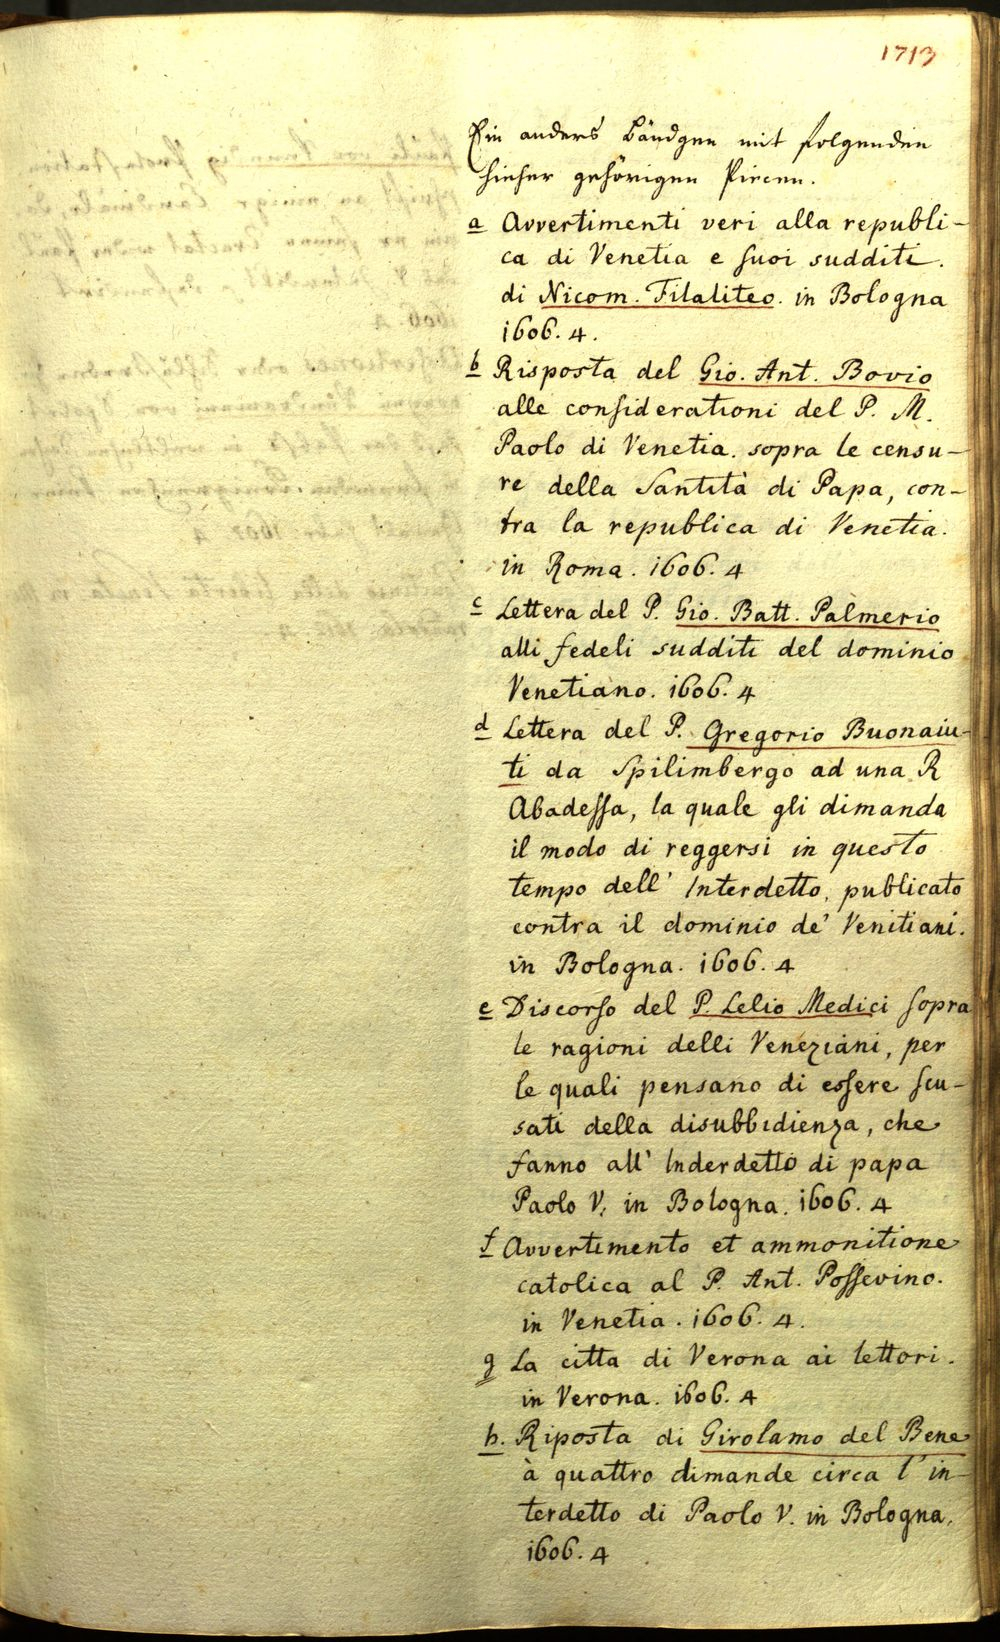 1713
Ein anders Bändgen mit folgenden
hieher gehörigen Piecen.
a Avvertimenti veri alla republi-
ca di Venetia e suoi sudditi.
di Nicom. Filaliteo. in Bologna
1606. 4.
b Risposta del Gio. Ant. Bovio
alle considerationi del P. M.
Paolo di Venetia. sopra le censu-
re della Santità di Papa, con-
tra la republica di Venetia.
in Roma. 1606. 4
c Lettera del P. Gio. Batt. Palmerio
alli fedeli sudditi del dominio
Venetiano. 1606. 4
d Lettera del P. Gregorio Buonaiu-
ti da Spilimbergo ad una R
Abadessa, la quale gli dimanda
il modo di reggersi in questo
tempo dell' Interdetto, publicato
contra il dominio de' Venitiani.
in Bologna. 1606. 4
e Discorso del P. Lelio Medici sopra
le ragioni delli Veneziani, per
le quali pensano di essere scu-
sati della disubbidienza, che
fanno all' Inderdetto di papa
Paolo V. in Bologna. 1606. 4
f Avvertimento et ammonitione
catolica al P. Ant. Possevino.
in Venetia. 1606. 4.
g La citta di Verona ai lettori.
in Verona. 1606. 4
h. Riposta di Girolamo del Bene
à quattro dimande circa l'in-
terdetto di Paolo V. in Bologna.
1606. 4